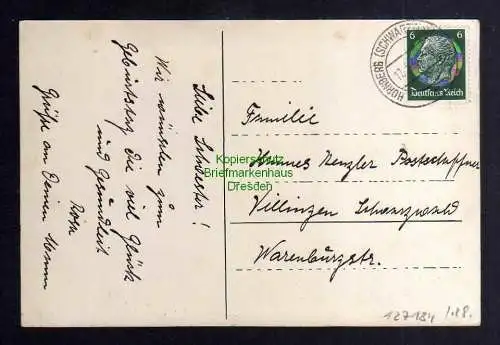 Liebe Schwester!
Wir wünschen zum
Geburtstag Dir viel Glück
und Gesundheit
Rosa
Grüße an Deinen Mann
HORNBERG (SCHWARZW
6 6
Deutsches Reich
Familie
Hannes Kenzler Postschaffner
Villingen Schwarzwald
Warenburgstr.
Kopierschutz
Briefmarkenhaus
Dresden
127184 /.18.